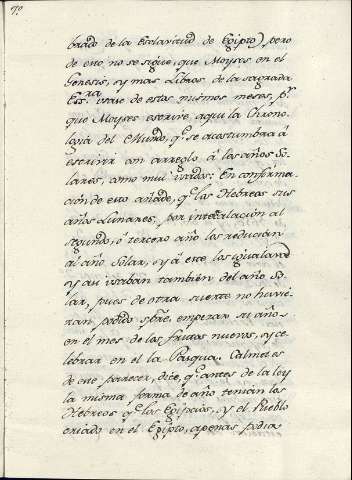 170
brado de la Esclavitud de Egipto) pero
de esto no se sigue, que Moyses en el
Genesis, y mas Libros de la sagrada
Ess.ra usase de estos mismos meses, p.r
que Moyses escrive aqui la Chrono-
logia del Mundo, q.e se acostumbra á
escrivir con arreglo á los años So-
lares, como mui usados: En confirma-
ción de esto añade, q.e los Hebreos sus
años Lunares por intercalación al
segundo, ó tercero año los reducian
al año solar, y á este los igualavan
y asi usaban también del año So-
lar, pues de otra suerte no huvie-
ran podido spre. empezar su año
en el mes de los frutos nuevos, y ce-
lebrar en el la Pasqua. Calmet es
de este parecer, dice, q.e antes de la ley
la misma forma de año tenian los
Hebreos q.e los Egipcios, y el Pueblo
criado en el Egipto, apenas podia